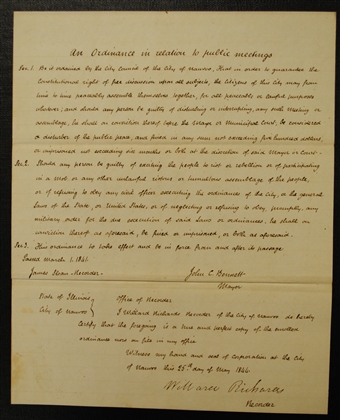 An Ordinance in relation to public meetings
Sec. 1. Be it ordained by the City Council of the City of Nauvoo, That in order to guarantee the
Constitutional right of free discussion upon all subjects, the Citizens of this City may from
time to time peaceably assemble themselves together, for all peaceable or lawful purposes
whatever; and should any person be guilty of disturbing or interrupting any such meeting or
assemblage, he shall on conviction thereof before the Mayor or Municipal Court, be considered
a disturber of the public peace, and fined in any sum not exceeding five hundred dollars,
or imprisoned not exceeding six months or both at the discretion of said Mayor or Court.
Sec. 2. Should any person be guilty of exciting the people to riot or rebellion or of participating
in a mob or any other unlawful riotous or tumultuous assemblage of the people,
or of refusing to obey any civil officer executing the ordinances of the City, or the general
laws of the State, or United States, or of neglecting or refusing to obey, promptly, any
military order for the due execution of said laws or ordinances, he shall on
conviction thereof as aforesaid, be fined or imprisoned, or both as aforesaid.
Sec. 3. This ordinance to take effect and be in force from and after its passage.
Passed March 1, 1841.
James Sloan Recorder. John C. Bennett
Mayor
State of Illinois Office of Recorder
City of Nauvoo I Willard Richards Recorder of the City of Nauvoo do hereby
Certify that the foregoing is a true and perfect copy of the enrolled
ordinance now on file in my office
Witness my hand and seal of Corporation at the City
of Nauvoo this 25th day of May 1844
Willard Richards
Recorder